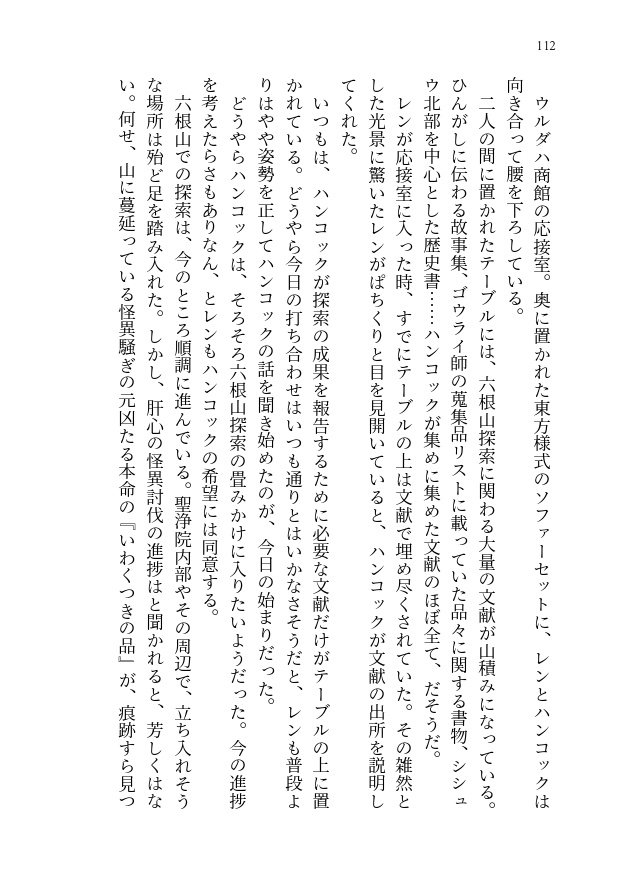 112
ウルダハ商館の応接室。奥に置かれた東方様式のソファーセットに、レンとハンコックは
向き合って腰を下ろしている。
二人の間に置かれたテーブルには、六根山探索に関わる大量の文献が山積みになっている。
ひんがしに伝わる故事集、ゴウライ師の蒐集品リストに載っていた品々に関する書物、シシュ
ウ北部を中心とした歴史書……ハンコックが集めに集めた文献のほぼ全て、だそうだ。
レンが応接室に入った時、すでにテーブルの上は文献で埋め尽くされていた。その雑然と
した光景に驚いたレンがぱちくりと目を見開いていると、ハンコックが文献の出所を説明し
てくれた。
いつもは、ハンコックが探索の成果を報告するために必要な文献だけがテーブルの上に置
かれている。どうやら今日の打ち合わせはいつも通りとはいかなさそうだと、レンも普段よ
りはやや姿勢を正してハンコックの話を聞き始めたのが、今日の始まりだった。
どうやらハンコックは、そろそろ六根山探索の畳みかけに入りたいようだった。今の進捗
を考えたらさもありなん、とレンもハンコックの希望には同意する。
六根山での探索は、今のところ順調に進んでいる。聖浄院内部やその周辺で、立ち入れそう
な場所は殆ど足を踏み入れた。しかし、肝心の怪異討伐の進捗はと聞かれると、芳しくはな
い。何せ、山に蔓延っている怪異騒ぎの元凶たる本命の『いわくつきの品』が、痕跡すら見つ